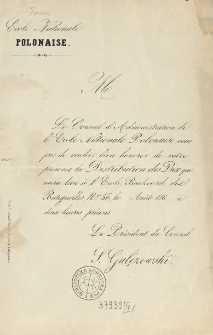 École Nationale
POLONAISE.
M
Le Conseil d'Administration de
l'École Nationale Polonaise vous
prie de vouloir bien honorer de votre
présence la Distribution des Prix qui
aura lieu à l'École Boulevard des
Batignolles No 56. le Août 186 à
deux heures précises
Le Président du Conseil
S. Gałęzowski
37939/II